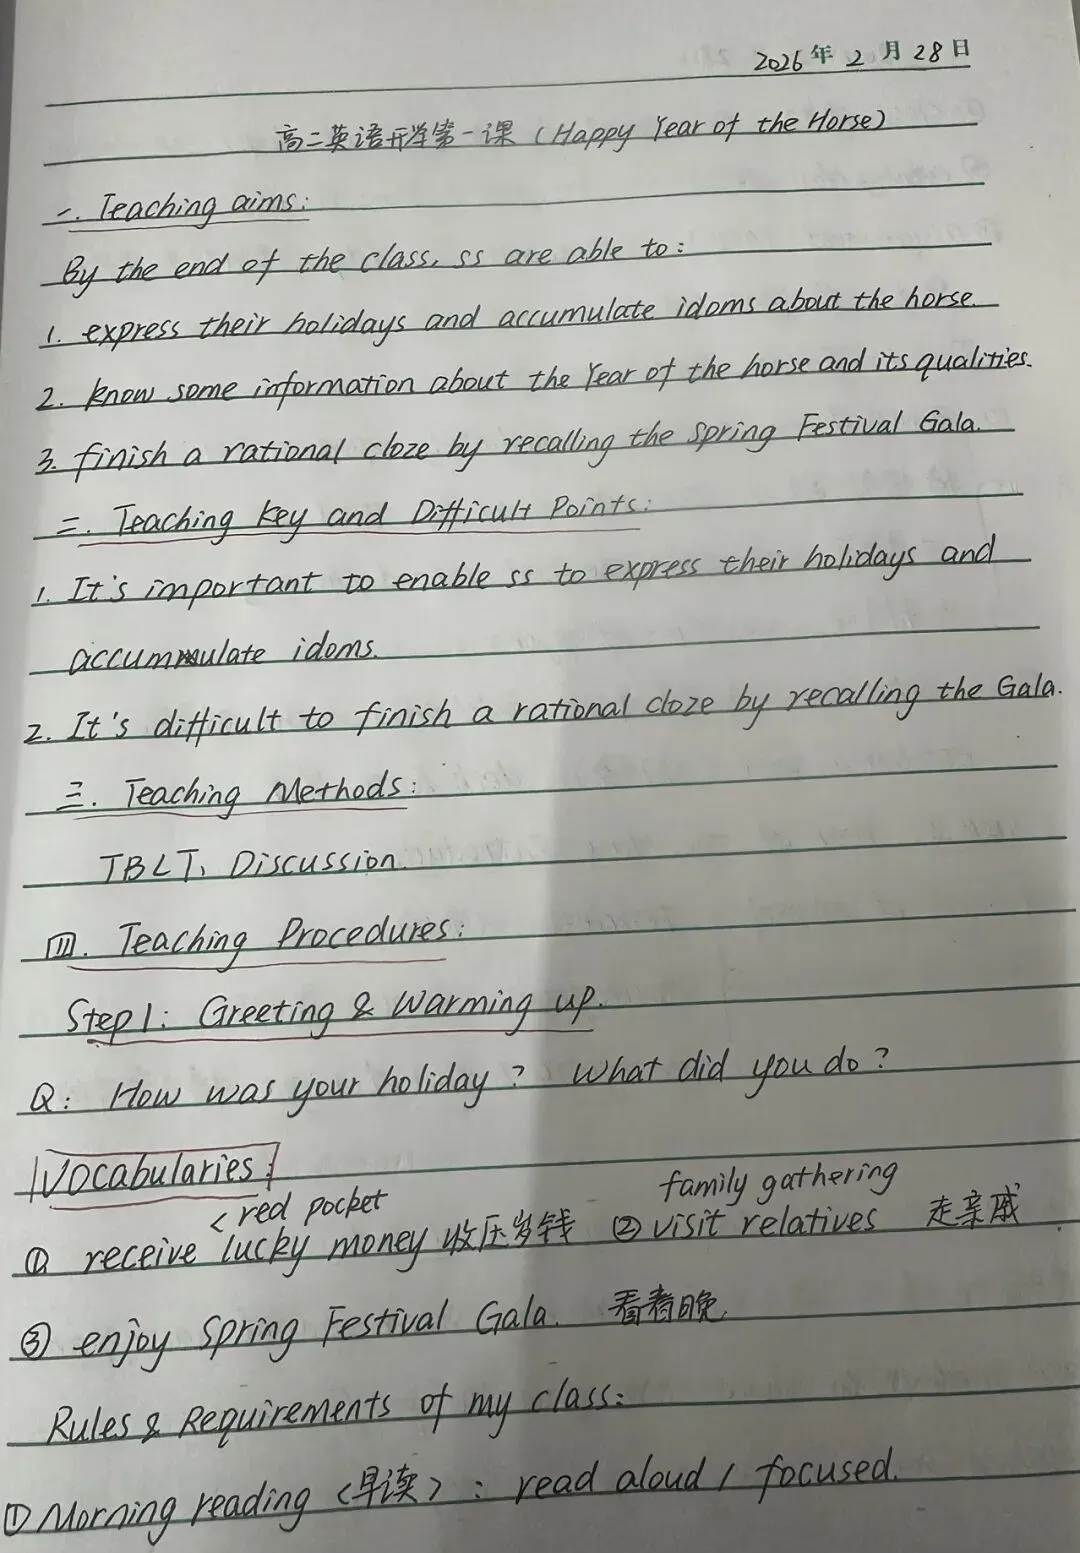 2026年2月28日
高二英语开学第一课（Happy Year of the Horse）
一. Teaching aims:
By the end of the class, ss are able to:
1. express their holidays and accumulate idoms about the horse.
2. know some information about the Year of the horse and its qualities.
3. finish a rational cloze by recalling the Spring Festival Gala.
二. Teaching key and Difficult Points:
1. It's important to enable ss to express their holidays and
accummulate idoms.
2. It's difficult to finish a rational cloze by recalling the Gala.
三. Teaching Methods:
TBLT、Discussion.
四. Teaching Procedures:
Step1: Greeting & Warming up.
Q: How was your holiday? What did you do?
Vocabularies:
< red pocket family gathering
① receive lucky money 收压岁钱 ② visit relatives 走亲戚
③ enjoy Spring Festival Gala. 看春晚.
Rules & Requirements of my class:
① Morning reading <早读>: read aloud / focused.